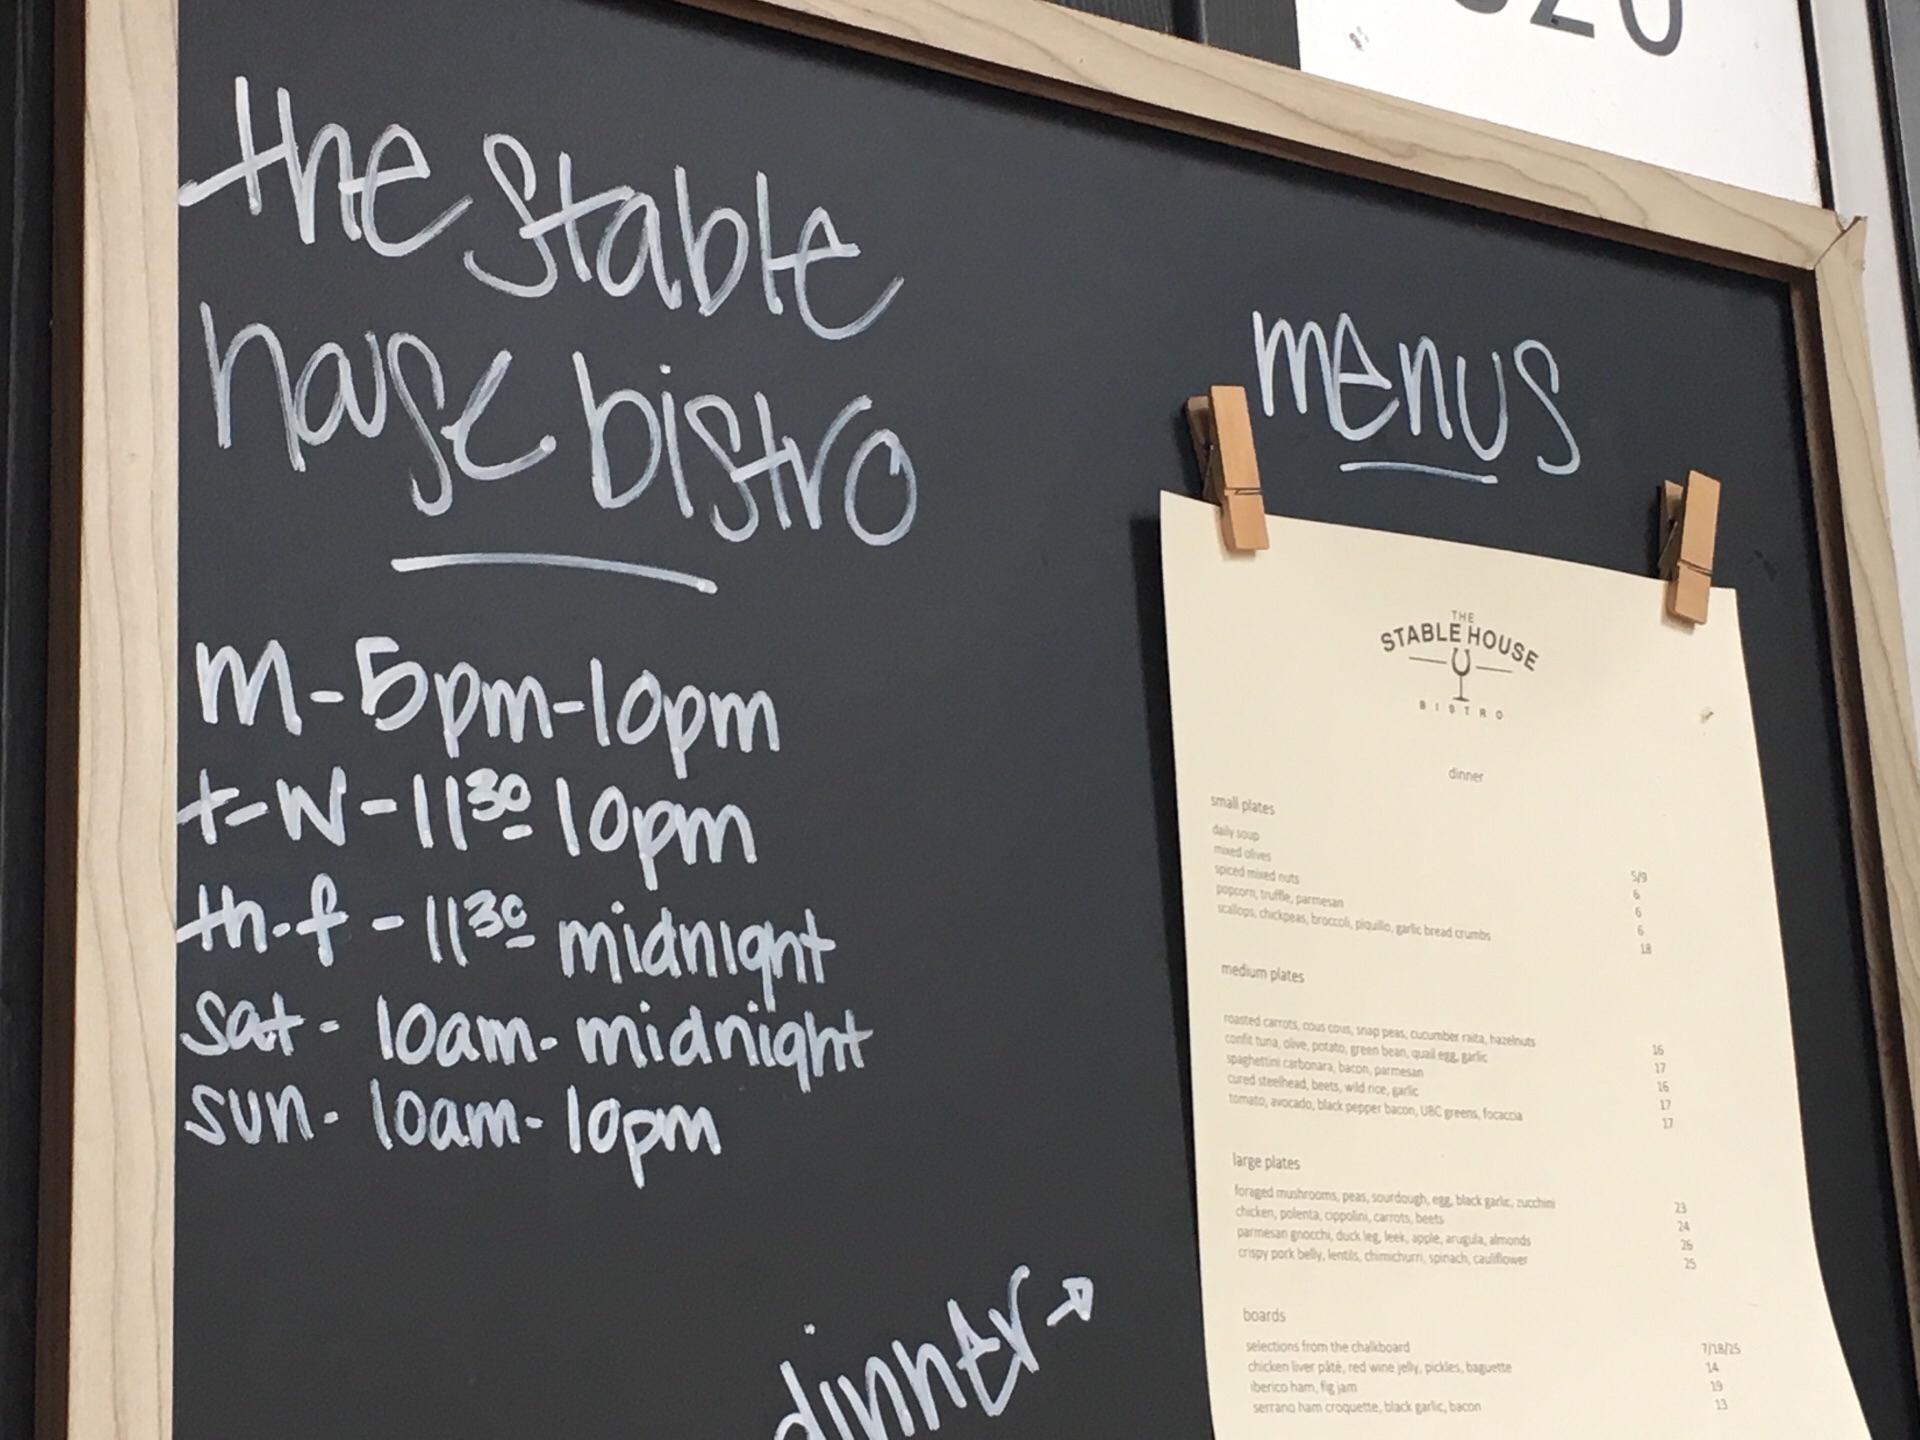 the stable
house bistro
m-5pm-10pm
t-w-11³⁰ 10pm
th-f - 11³⁰ midnight
sat- 10am- midnight
sun- 10am- 10pm
dinner →
menus
THE
STABLE HOUSE
BISTRO
dinner
small plates
daily soup 5/9
mixed olives 6
spiced mixed nuts 6
popcorn, truffle, parmesan 6
scallops, chickpeas, broccoli, piquillo, garlic bread crumbs 18
medium plates
roasted carrots, cous cous, snap peas, cucumber raita, hazelnuts 16
confit tuna, olive, potato, green bean, quail egg, garlic 17
spaghettini carbonara, bacon, parmesan 16
cured steelhead, beets, wild rice, garlic 17
tomato, avocado, black pepper bacon, UBC greens, focaccia 17
large plates
foraged mushrooms, peas, sourdough, egg, black garlic, zucchini 23
chicken, polenta, cippolini, carrots, beets 24
parmesan gnocchi, duck leg, leek, apple, arugula, almonds 26
crispy pork belly, lentils, chimichurri, spinach, cauliflower 25
boards
selections from the chalkboard 7/18/25
chicken liver pâté, red wine jelly, pickles, baguette 14
iberico ham, fig jam 19
serrano ham croquette, black garlic, bacon 13